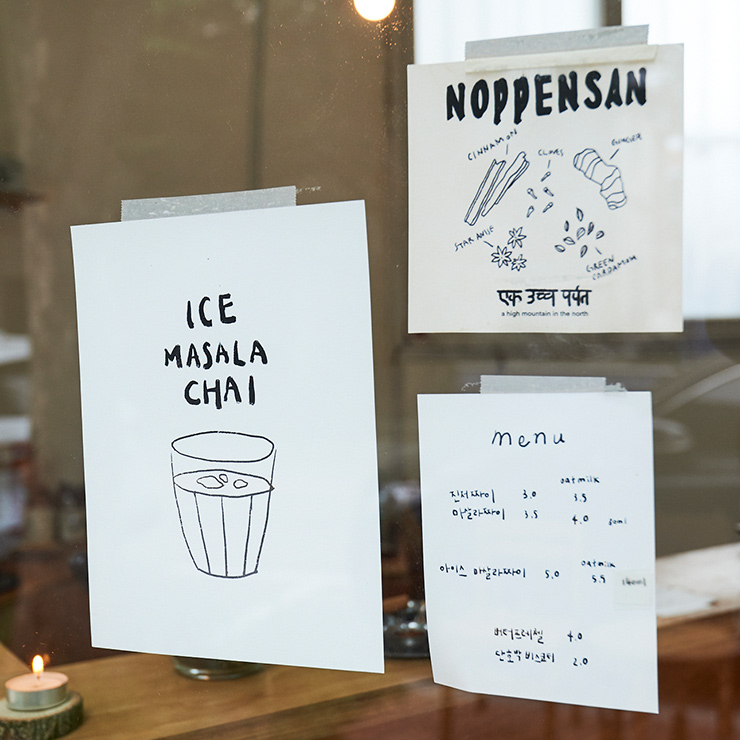 NOPPENSAN
CINNAMON
CLOVES
GINGER
STAR ANISE
GREEN
CARDAMOM
एक उच्च पर्वत
a high mountain in the north
ICE
MASALA
CHAI
menu
oatmilk
진저짜이 3.0 3.5
마살라짜이 3.5 4.0 80ml
oatmilk
아이스 마살라짜이 5.0 5.5 140ml
버터프레첼 4.0
단호박 비스코티 2.0